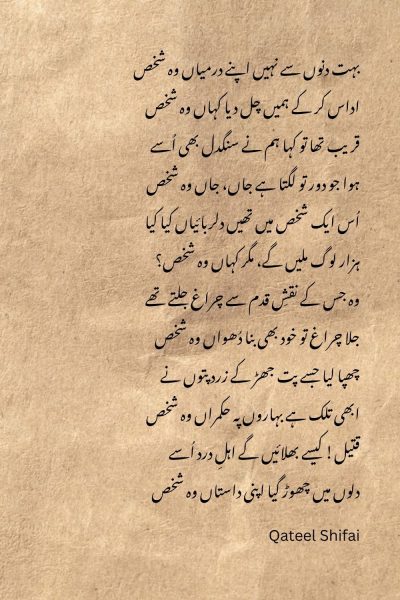 بہت دنوں سے نہیں اپنے درمیاں وہ شخص
اداس کر کے ہمیں چل دیا کہاں وہ شخص
قریب تھا تو کہا ہم نے سنگدل بھی اُسے
ہوا جو دور تو لگتا ہے جاں، جاں وہ شخص
اُس ایک شخص میں تھیں دلربائیاں کیا کیا
ہزار لوگ ملیں گے، مگر کہاں وہ شخص؟
وہ جس کے نقشِ قدم سے چراغ جلتے تھے
جلا چراغ تو خود بھی بنا دُھواں وہ شخص
چھپا لیا جسے پت جھڑ کے زرد پتوں نے
ابھی تلک ہے بہاروں پہ حکمراں وہ شخص
قتیل! کیسے بھلائیں گے اہلِ درد اُسے
دلوں میں چھوڑ گیا اپنی داستاں وہ شخص
Qateel Shifai